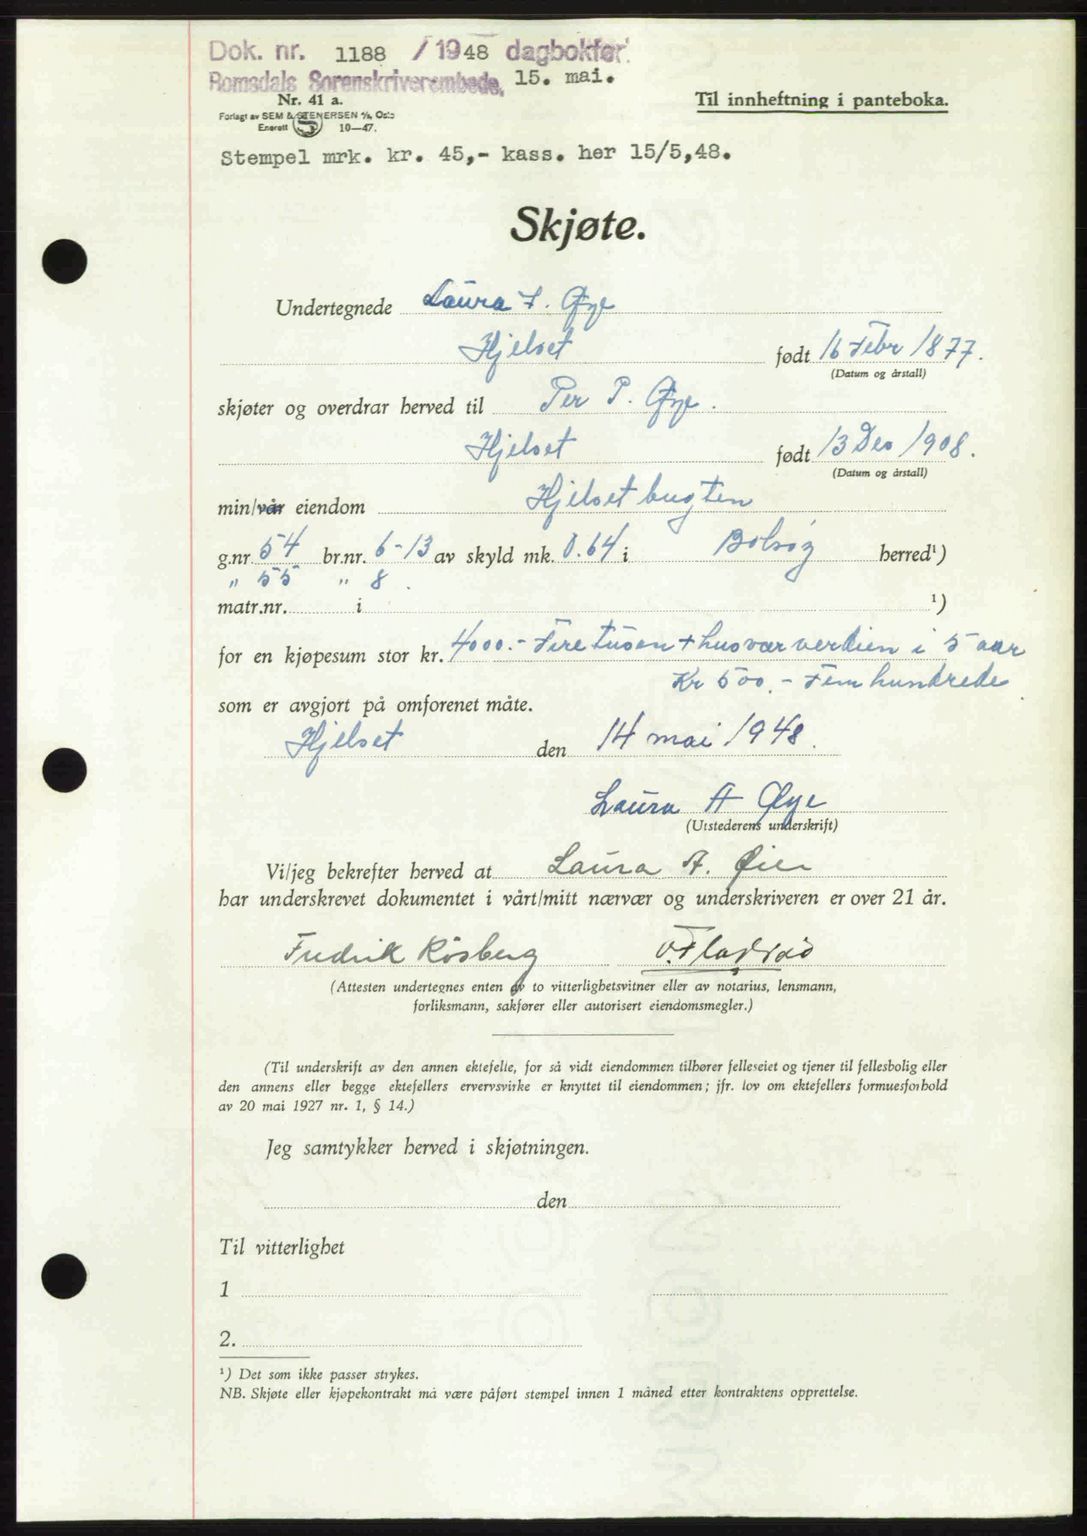 Dok. nr. 1188 / 1948 dagbokfør
Romsdals Sorenskriverembede, 15. mai.
Nr. 41 a.
Til innheftning i panteboka.
Forlagt av SEM & STENERSEN A/S, Oslo
Enerett 10—47.
Stempel mrk. kr. 45,- kass. her 15/5,48.
Skjøte.
Undertegnede Laura F. Øye
Hjelset født 16 Febr 1877.
(Datum og årstall)
skjøter og overdrar herved til Per P. Øye.
Hjelset født 13 Des 1908.
(Datum og årstall)
min/vår eiendom Hjelsetbugten
g.nr. 54 br.nr. 6-13 av skyld mk. 0.64 i Bolsøy herred¹)
" 55 " 8.
matr.nr. i ¹)
for en kjøpesum stor kr. 4000.- Fire tusen + husværverdien i 5 aar
Kr 500.- Fem hundrede
som er avgjort på omforenet måte.
Hjelset den 14 mai 1948.
Laura A Øye
(Utstederens underskrift)
Vi/jeg bekrefter herved at Laura A. Øien
har underskrevet dokumentet i vårt/mitt nærvær og underskriveren er over 21 år.
Fredrik Røsberg
(Attesten undertegnes enten av to vitterlighetsvitner eller av notarius, lensmann,
forliksmann, sakfører eller autorisert eiendomsmegler.)
(Til underskrift av den annen ektefelle, for så vidt eiendommen tilhører felleseiet og tjener til fellesbolig eller
den annens eller begge ektefellers ervervsvirke er knyttet til eiendommen; jfr. lov om ektefellers formuesforhold
av 20 mai 1927 nr. 1, § 14.)
Jeg samtykker herved i skjøtningen.
den
Til vitterlighet
1
2.
¹) Det som ikke passer strykes.
NB. Skjøte eller kjøpekontrakt må være påført stempel innen 1 måned etter kontraktens opprettelse.